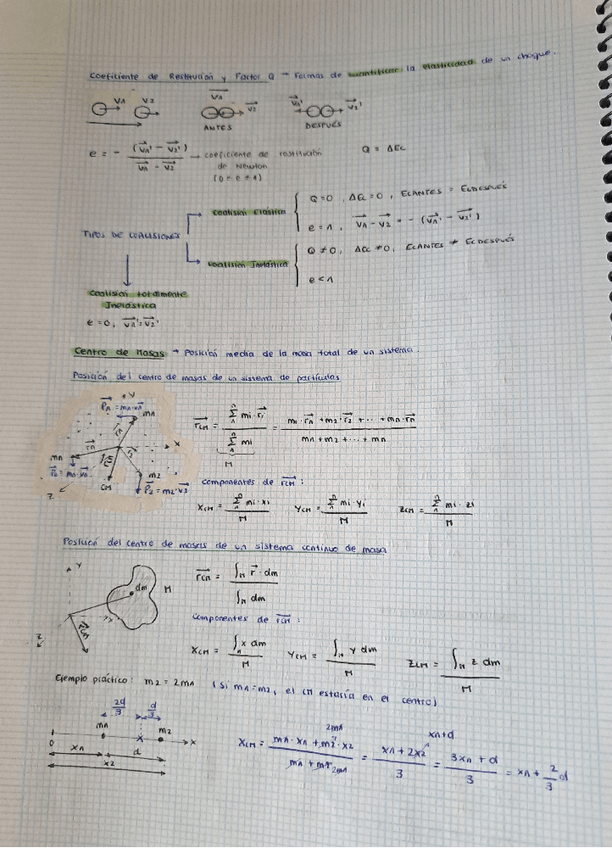 Coeficiente de Restitución y Factor Q → Formas de cuantificar la elasticidad de un choque.
V1 V2 V1 V2 V1' V2'
ANTES DESPUÉS
e = - (V1' - V2') / (V1 - V2) → coeficiente de restitución de Newton (0 ≤ e ≤ 1) Q = ΔEc
TIPOS DE COLISIONES
Colisión Elástica
Q = 0, ΔEc = 0, Ec ANTES = Ec DESPUÉS
e = 1, V1 - V2 = - (V1' - V2')
Colisión Inelástica
Q ≠ 0, ΔEc ≠ 0, Ec ANTES ≠ Ec DESPUÉS
e < 1
Colisión totalmente
Inelástica
e = 0, V1' = V2'
Centro de Masas → Posición media de la masa total de un sistema.
Posición del centro de masas de un sistema de partículas
rCM = Σ mi · ri / Σ mi = m1 · r1 + m2 · r2 + ... + mn · rn / m1 + m2 + ... + mn
M
componentes de rCM :
XCM = Σ mi · xi / M YCM = Σ mi · yi / M ZCM = Σ mi · zi / M
x
z
CM
m2
Posición del centro de masas de un sistema continuo de masa
y
dm
M
rCM
rCM = ∫M r · dm / ∫M dm
Componentes de rCM :
XCM = ∫M x dm / M YCM = ∫M y dm / M ZCM = ∫M z dm / M
Ejemplo práctico: m2 = 2m1 (Si m1 = m2, el CM estaría en el centro)
2d/3 d/3
m1 m2
0 x
x1 d
x2
XCM = m1 · x1 + m2 · x2 / m1 + m2 = x1 + 2x2 / 3 = 3x1 + d / 3 = x1 + 2/3 d
2m1 x1+d
2m1